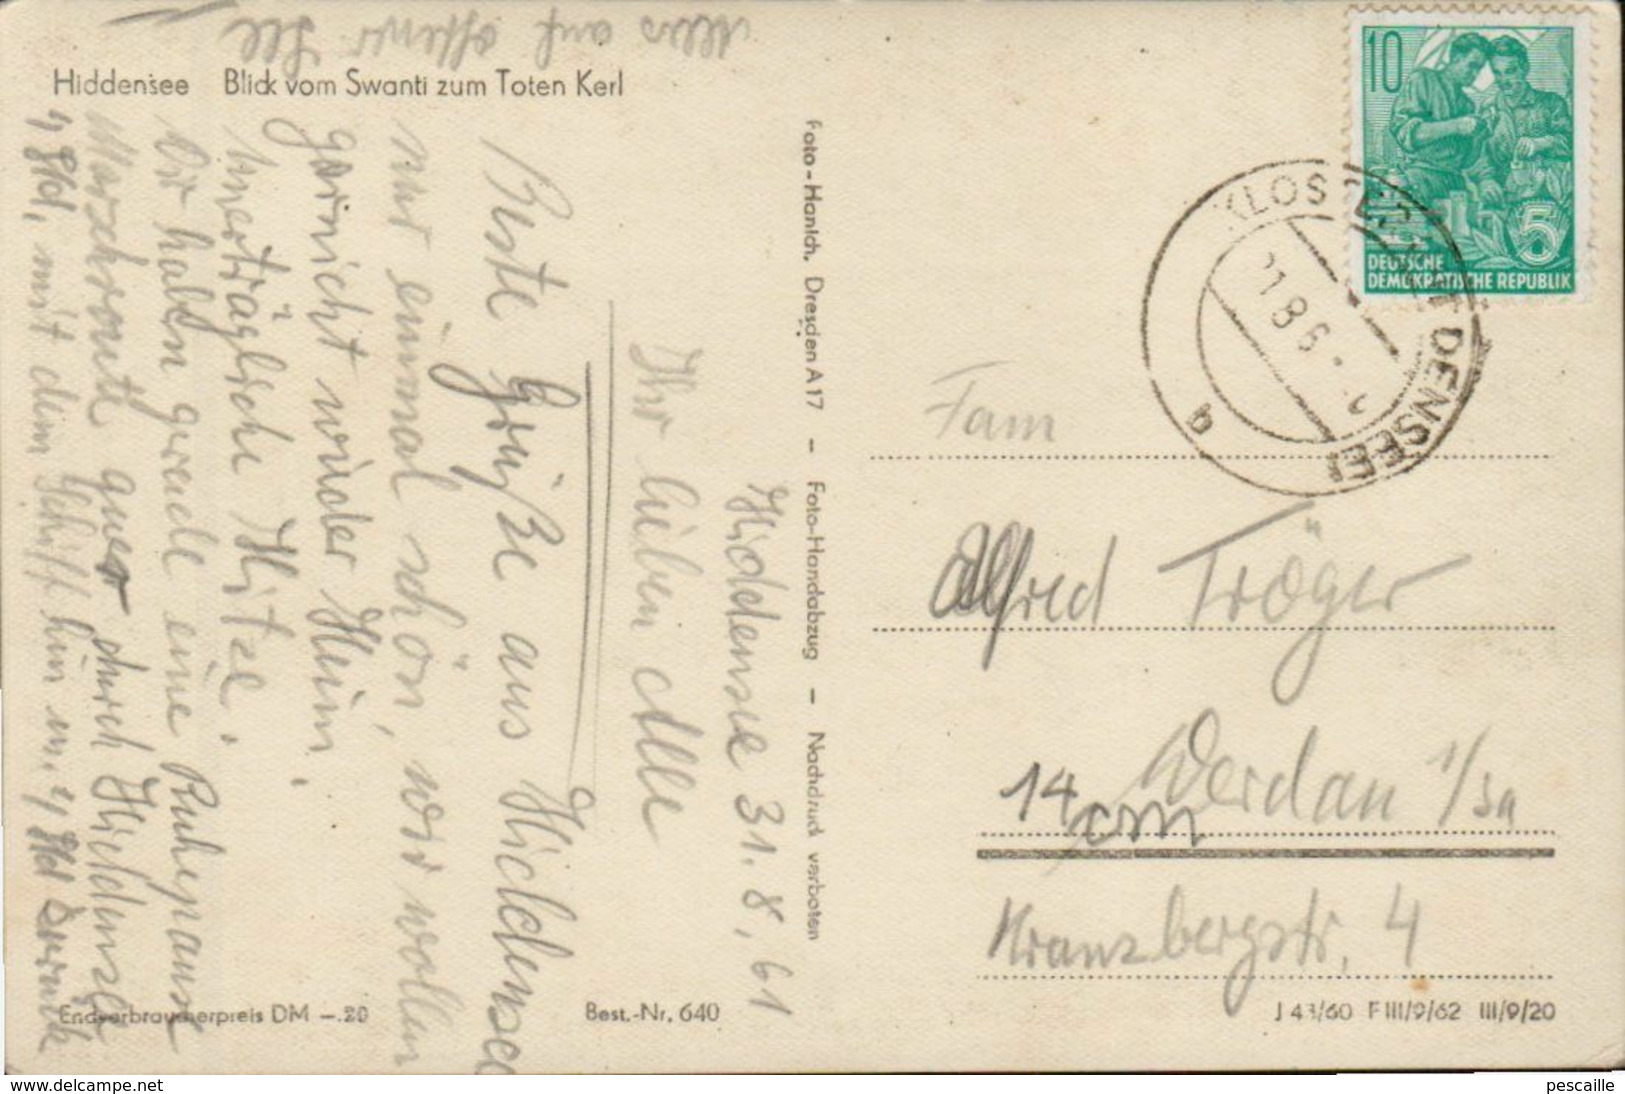 Hiddensee Blick vom Swanti zum Toten Kerl
Hiddensee 31.8.61
Ihr lieben Alle
Beste Grüße aus Hiddensee
nur einmal schön, wir wollen
garnicht wieder Heim.
Unerträgliche Hitze.
Wir haben gerade eine Ruhepause
Marschroute quer durch Hiddensee
4 Std, mit dem Schiff hin u. 4 Std zurück
Alles auf offener See
Endverbraucherpreis DM -.20
Best.-Nr. 640
Foto-Hanich, Dresden A 17 – Foto-Handabzug – Nachdruck verboten
10
5
DEUTSCHE
DEMOKRATISCHE REPUBLIK
KLOSTER HIDDENSEE
b
Fam
Alfred Tröger
14 cm
Werdau i/Sa
Kranzbergstr. 4
J 43/60 F III/9/62 III/9/20
www.delcampe.net
pescaille